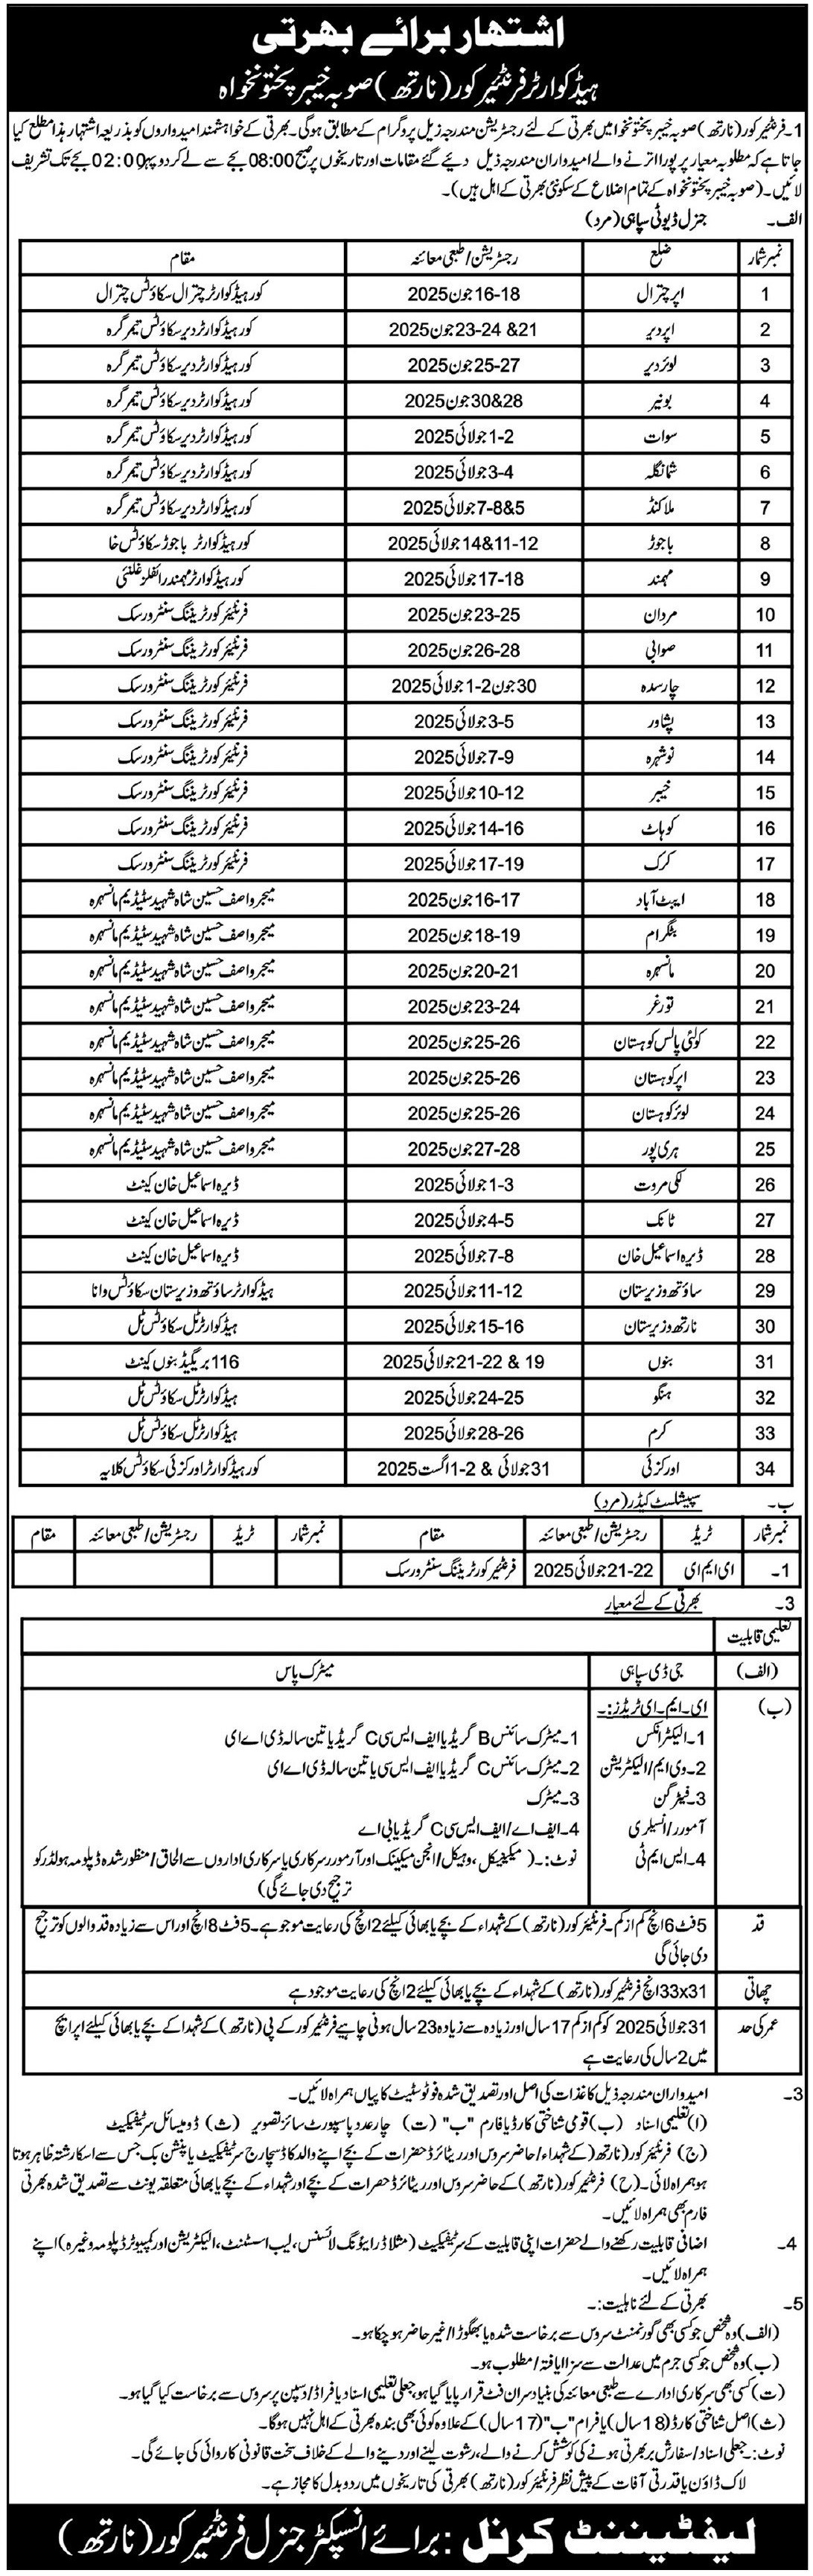 اشتہار برائے بھرتی
ہیڈکوارٹر فرنٹیئر کور (نارتھ) صوبہ خیبر پختونخواہ
1۔ فرنٹیئر کور (نارتھ) صوبہ خیبر پختونخوا میں بھرتی کے لئے رجسٹریشن مندرجہ ذیل پروگرام کے مطابق ہوگی۔ بھرتی کے خواہشمند امیدواروں کو بذریعہ اشتہار ہذا مطلع کیا
جاتا ہے کہ مطلوبہ معیار پر پورا اترنے والے امیدواران مندرجہ ذیل دیئے گئے مقامات اور تاریخوں پر صبح 08:00 بجے سے لے کر دوپہر 02:00 بجے تک تشریف
لائیں۔ (صوبہ خیبر پختونخواہ کے تمام اضلاع کے سکونتی بھرتی کے اہل ہیں)۔
الف۔ جنرل ڈیوٹی سپاہی (مرد)
نمبر شمار ضلع رجسٹریشن/طبی معائنہ مقام
1 اپر چترال 16-18 جون 2025 کور ہیڈکوارٹر چترال سکاؤٹس چترال
2 اپر دیر 21& 23-24 جون 2025 کور ہیڈکوارٹر دیر سکاؤٹس تیمرگرہ
3 لوئر دیر 25-27 جون 2025 کور ہیڈکوارٹر دیر سکاؤٹس تیمرگرہ
4 بونیر 28&30 جون 2025 کور ہیڈکوارٹر دیر سکاؤٹس تیمرگرہ
5 سوات 1-2 جولائی 2025 کور ہیڈکوارٹر دیر سکاؤٹس تیمرگرہ
6 شانگلہ 3-4 جولائی 2025 کور ہیڈکوارٹر دیر سکاؤٹس تیمرگرہ
7 ملاکنڈ 5&7-8 جولائی 2025 کور ہیڈکوارٹر دیر سکاؤٹس تیمرگرہ
8 باجوڑ 11-12&14 جولائی 2025 کور ہیڈکوارٹر باجوڑ سکاؤٹس خا
9 مہمند 17-18 جولائی 2025 کور ہیڈکوارٹر مہمند رائفلز غلنئی
10 مردان 23-25 جون 2025 فرنٹیئر کور ٹریننگ سنٹر ورسک
11 صوابی 26-28 جون 2025 فرنٹیئر کور ٹریننگ سنٹر ورسک
12 چارسدہ 30 جون 2-1 جولائی 2025 فرنٹیئر کور ٹریننگ سنٹر ورسک
13 پشاور 3-5 جولائی 2025 فرنٹیئر کور ٹریننگ سنٹر ورسک
14 نوشہرہ 7-9 جولائی 2025 فرنٹیئر کور ٹریننگ سنٹر ورسک
15 خیبر 10-12 جولائی 2025 فرنٹیئر کور ٹریننگ سنٹر ورسک
16 کوہاٹ 14-16 جولائی 2025 فرنٹیئر کور ٹریننگ سنٹر ورسک
17 کرک 17-19 جولائی 2025 فرنٹیئر کور ٹریننگ سنٹر ورسک
18 ایبٹ آباد 16-17 جون 2025 میجر واصف حسین شاہ شہید سٹیڈیم مانسہرہ
19 بٹگرام 18-19 جون 2025 میجر واصف حسین شاہ شہید سٹیڈیم مانسہرہ
20 مانسہرہ 20-21 جون 2025 میجر واصف حسین شاہ شہید سٹیڈیم مانسہرہ
21 تورغر 23-24 جون 2025 میجر واصف حسین شاہ شہید سٹیڈیم مانسہرہ
22 کولئی پالس کوہستان 25-26 جون 2025 میجر واصف حسین شاہ شہید سٹیڈیم مانسہرہ
23 اپر کوہستان 25-26 جون 2025 میجر واصف حسین شاہ شہید سٹیڈیم مانسہرہ
24 لوئر کوہستان 25-26 جون 2025 میجر واصف حسین شاہ شہید سٹیڈیم مانسہرہ
25 ہری پور 27-28 جون 2025 میجر واصف حسین شاہ شہید سٹیڈیم مانسہرہ
26 لکی مروت 1-3 جولائی 2025 ڈیرہ اسماعیل خان کینٹ
27 ٹانک 4-5 جولائی 2025 ڈیرہ اسماعیل خان کینٹ
28 ڈیرہ اسماعیل خان 7-8 جولائی 2025 ڈیرہ اسماعیل خان کینٹ
29 ساؤتھ وزیرستان 11-12 جولائی 2025 ہیڈکوارٹر ساؤتھ وزیرستان سکاؤٹس وانا
30 نارتھ وزیرستان 15-16 جولائی 2025 ہیڈکوارٹر ٹل سکاؤٹس ٹل
31 بنوں 19 & 21-22 جولائی 2025 116 بریگیڈ بنوں کینٹ
32 ہنگو 24-25 جولائی 2025 ہیڈکوارٹر ٹل سکاؤٹس ٹل
33 کرم 28-26 جولائی 2025 ہیڈکوارٹر ٹل سکاؤٹس ٹل
34 اورکزئی 31 جولائی & 2-1 اگست 2025 کور ہیڈکوارٹر اورکزئی سکاؤٹس کلایہ
ب۔ سپیشلسٹ کیڈر (مرد)
نمبر شمار ٹریڈ رجسٹریشن/طبی معائنہ مقام نمبر شمار ٹریڈ رجسٹریشن/طبی معائنہ مقام
1۔ ای ایم ای 21-22 جولائی 2025 فرنٹیئر کور ٹریننگ سنٹر ورسک
3۔ بھرتی کے لئے معیار
تعلیمی قابلیت
(الف) جی ڈی سپاہی میٹرک پاس
(ب) ای۔ایم۔ای ٹریڈز:۔
1۔ الیکٹرانکس 1۔ میٹرک سائنس B گریڈ یا ایف ایس سی C گریڈ یا تین سالہ ڈی اے ای
2۔ وی ایم/الیکٹریشن 2۔ میٹرک سائنس C گریڈ یا ایف ایس سی یا تین سالہ ڈی اے ای
3۔ فیٹر گن 3۔ میٹرک
آمورر/انسیلری 4۔ ایف اے/ایف ایس سی C گریڈ یا بی اے
4۔ ایس ایم ٹی نوٹ:۔ (میکینیکل، وہیکل/انجن میکینک اور آرمورر سرکاری یا سرکاری اداروں سے الحاق/منظور شدہ ڈپلومہ ہولڈر کو
ترجیح دی جائے گی)
قد 5 فٹ 6 انچ کم از کم۔ فرنٹیئر کور (نارتھ) کے شہداء کے بچے یا بھائی کیلئے 2 انچ کی رعایت موجود ہے۔ 5 فٹ 8 انچ اور اس سے زیادہ قد والوں کو ترجیح
دی جائی گی
چھاتی 33x31 انچ فرنٹیئر کور (نارتھ) کے شہداء کے بچے یا بھائی کیلئے 2 انچ کی رعایت موجود ہے
عمر کی حد 31 جولائی 2025 کو کم از کم 17 سال اور زیادہ سے زیادہ 23 سال ہونی چاہیے فرنٹیئر کور کے پی (نارتھ) کے شہدا کے بچے یا بھائی کیلئے اپر ایج
میں 2 سال کی رعایت ہے
3۔ امیدواران مندرجہ ذیل کاغذات کی اصل اور تصدیق شدہ فوٹوسٹیٹ کاپیاں ہمراہ لائیں۔
(ا) تعلیمی اسناد (ب) قومی شناختی کارڈ یا فارم "ب" (ت) چار عدد پاسپورٹ سائز تصویر (ث) ڈومیسائل سرٹیفکیٹ
(ج) فرنٹیئر کور (نارتھ) کے شہداء/حاضر سروس اور ریٹائرڈ حضرات کے بچے اپنے والد کا ڈسچارج سرٹیفکیٹ یا پنشن بک جس سے اسکا رشتہ ظاہر ہوتا
ہو ہمراہ لائی۔ (ح) فرنٹیئر کور (نارتھ) کے حاضر سروس اور ریٹائرڈ حضرات کے بچے اور شہداء کے بچے یا بھائی متعلقہ یونٹ سے تصدیق شدہ بھرتی
فارم بھی ہمراہ لائیں۔
4۔ اضافی قابلیت رکھنے والے حضرات اپنی قابلیت کے سرٹیفکیٹ (مثلا ڈرائیونگ لائسنس، لیب اسسٹنٹ، الیکٹریشن اور کمپیوٹر ڈپلومہ وغیرہ) اپنے
ہمراہ لائیں۔
5۔ بھرتی کے لئے نااہلیت:۔
(الف) وہ شخص جو کسی بھی گورنمنٹ سروس سے برخاست شدہ یا بھگوڑا/غیر حاضر ہو چکا ہو۔
(ب) وہ شخص جو کسی جرم میں عدالت سے سزا یافتہ/مطلوب ہو۔
(ت) کسی بھی سرکاری ادارے سے طبی معائنہ کی بنیاد پر ان فٹ قرار پایا گیا ہو، جعلی تعلیمی اسناد یا فراڈ/ڈسپلن پر سروس سے برخاست کیا گیا ہو۔
(ث) اصل شناختی کارڈ (18 سال) یا فرام "ب" (17 سال) کے علاوہ کوئی بھی بندہ بھرتی کے اہل نہیں ہوگا۔
نوٹ:۔ جعلی اسناد/سفارش پر بھرتی ہونے کی کوشش کرنے والے، رشوت لینے اور دینے والے کے خلاف سخت قانونی کاروائی کی جائے گی۔
لاک ڈاؤن یا قدرتی آفات کے پیش نظر فرنٹیئر کور (نارتھ) بھرتی کی تاریخوں میں ردوبدل کا مجاز ہے۔
لیفٹیننٹ کرنل : برائے انسپکٹر جنرل فرنٹیئر کور (نارتھ)